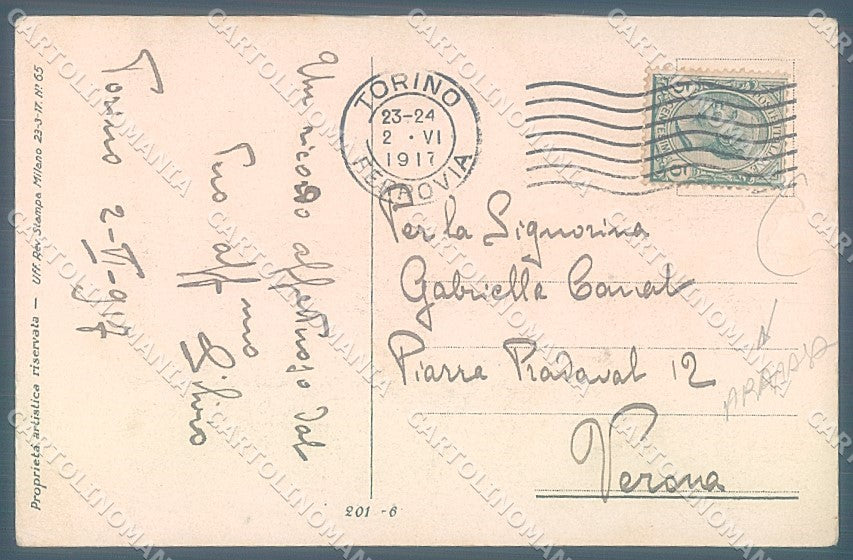 Proprietà artistica riservata — Uff. Rev. Stampa Milano 23-3-17. Nº 65
Torino 2-VI-917
Un ricordo affettuoso dal
Tuo aff mo
Silvio
TORINO
23-24
2 · VI
1917
FERROVIA
5
5
Per la Signorina
Gabriella Canal
Piazza Pradaval 12
Verona
201 - 6
CARTOLINOMANIA